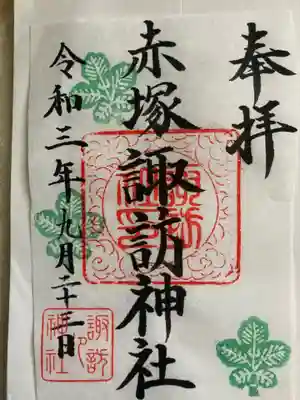 奉拝
赤塚諏訪神社
令和三年九月二十三日
諏訪
神社
印